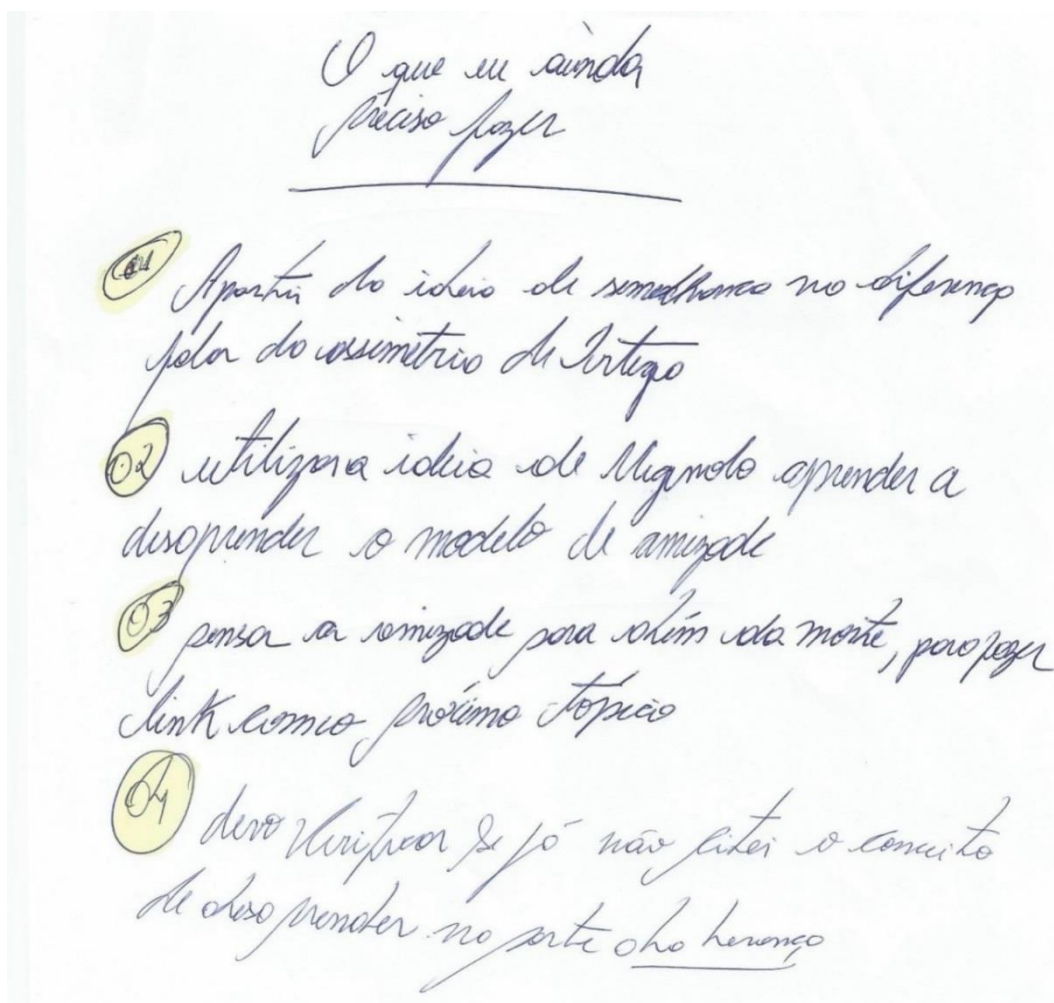 O que eu ainda
preciso fazer
01 Apartir da ideia de semelhança na diferença
falar da assimetria de Ortega
02 utilizar a ideia de Mignolo aprender a
desaprender o modelo de amizade
03 pensar a amizade para além da morte, para fazer
link com o próximo tópico
04 devo verificar se já não citei o conceito
de desaprender na parte da herança